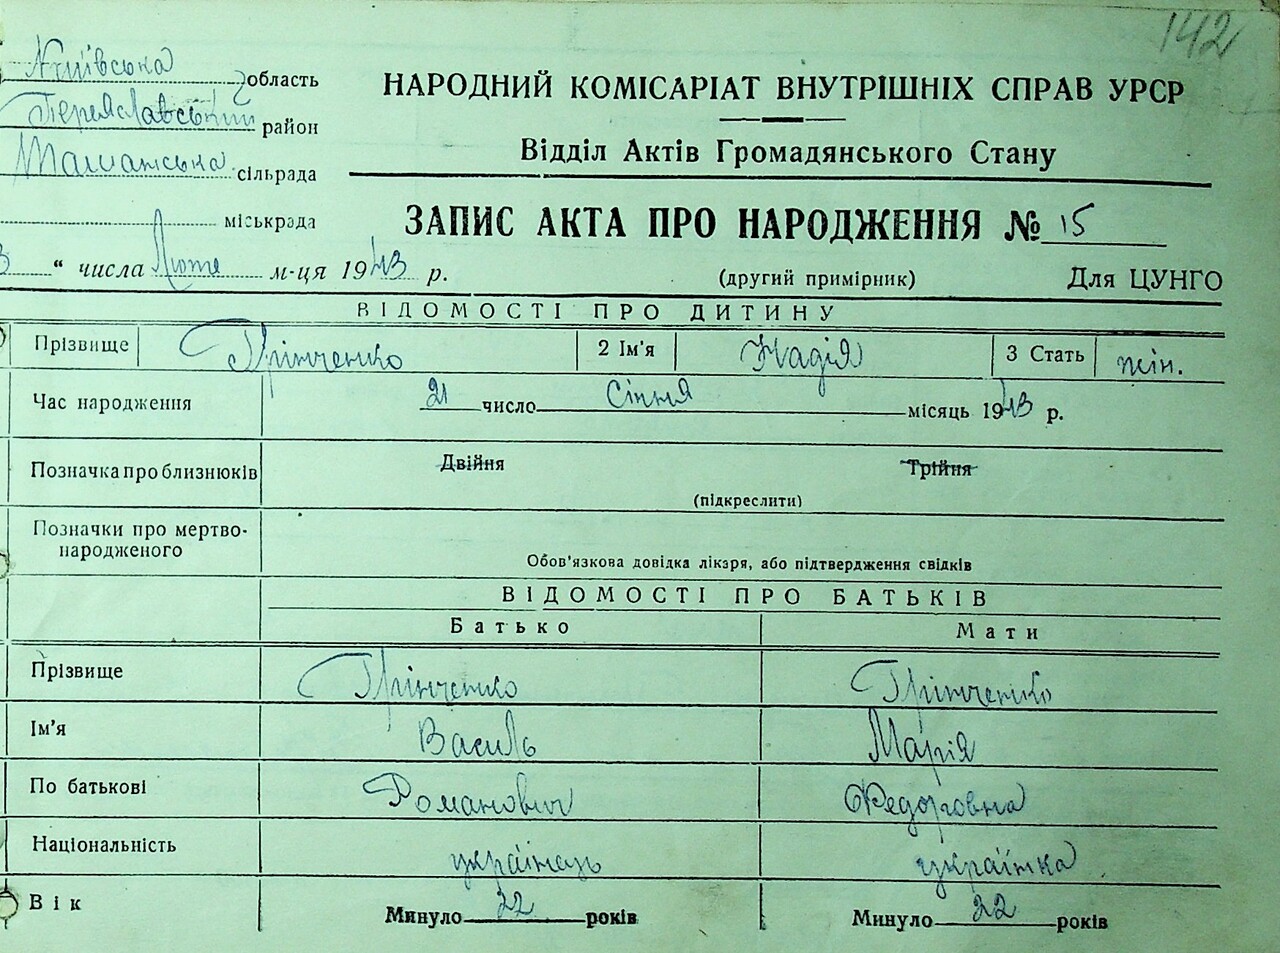 142
Київська область
Переяславський район
Ташанська сільрада
міськрада
НАРОДНИЙ КОМІСАРІАТ ВНУТРІШНІХ СПРАВ УРСР
Відділ Актів Громадянського Стану
ЗАПИС АКТА ПРО НАРОДЖЕННЯ № 15
3 “ числа Люте м-ця 1943 р.
(другий примірник)
Для ЦУНГО
ВІДОМОСТІ ПРО ДИТИНУ
Прізвище Грінченко 2 Ім'я Надія 3 Стать жін.
Час народження 21 число Січня місяць 1943 р.
Позначка про близнюків Двійня Трійня
(підкреслити)
Позначки про мертво-
народженого
Обов'язкова довідка лікаря, або підтвердження свідків
ВІДОМОСТІ ПРО БАТЬКІВ
Батько Мати
Прізвище Грінченко Грінченко
Ім'я Василь Марія
По батькові Романович Федоровна
Національність українець українка
Вік Минуло 22 років Минуло 22 років